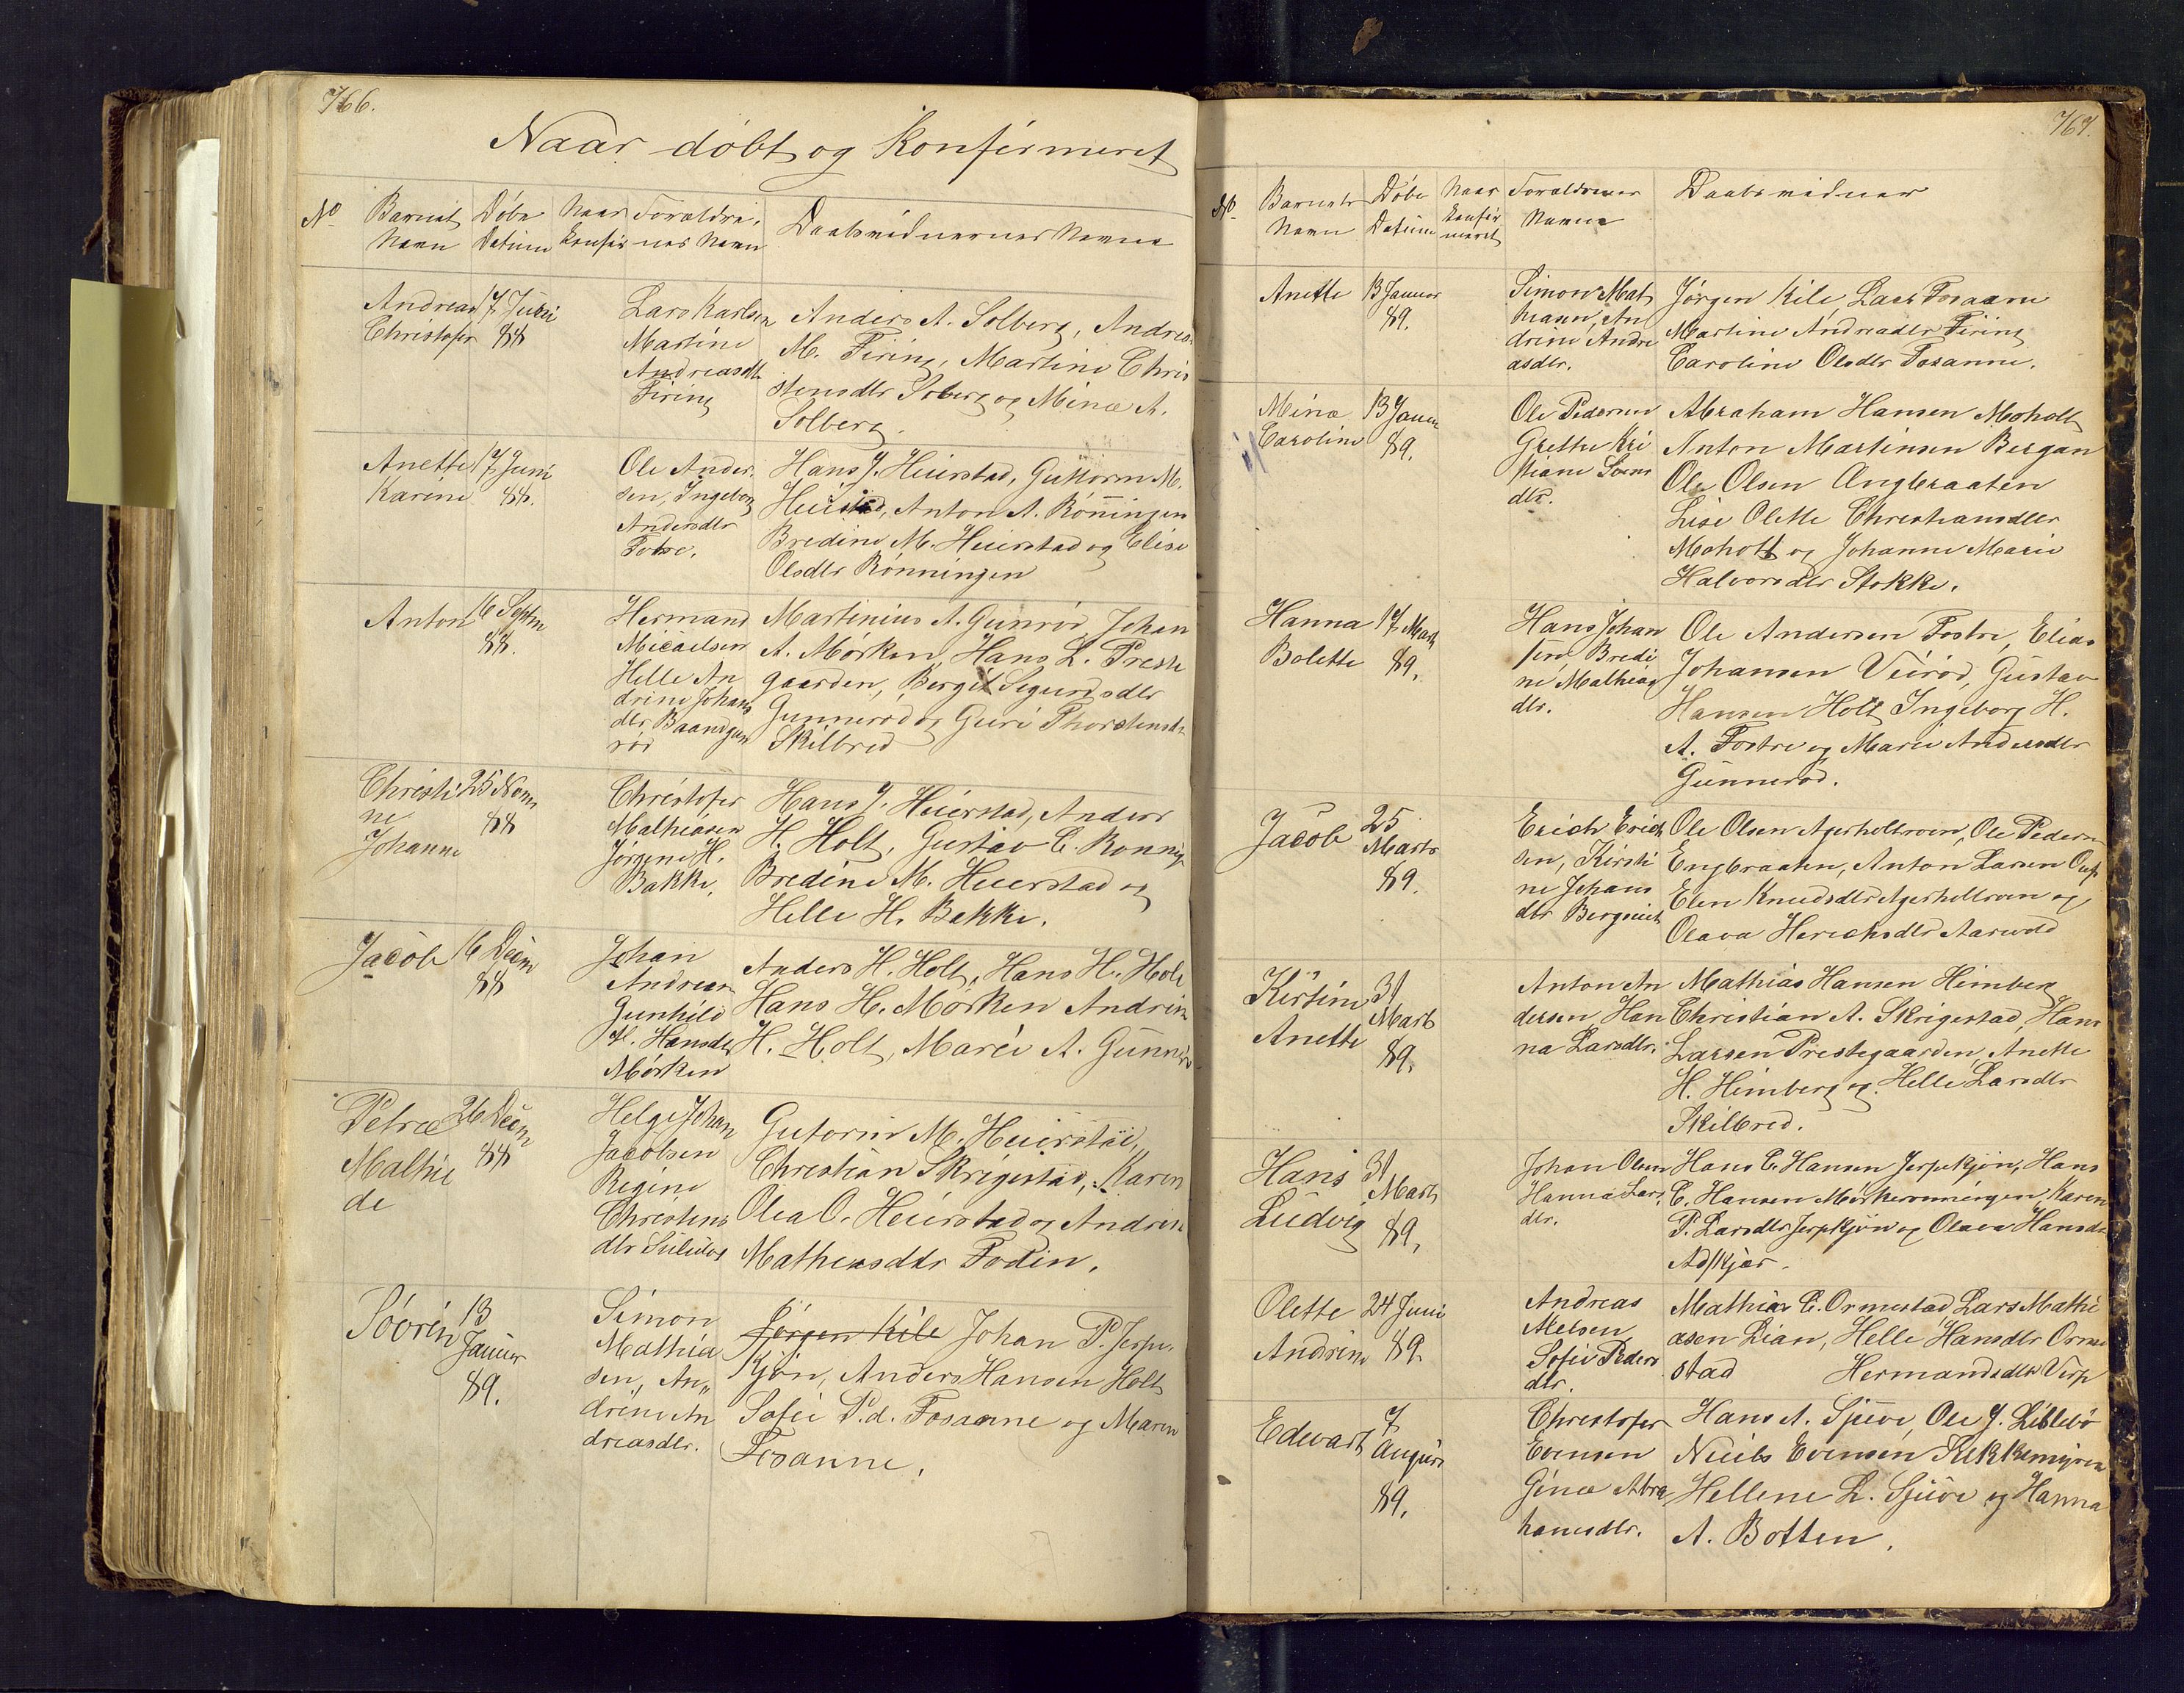 766.
Naar döbt og Konfirmeret
No
Barnets Navn
Döbe Datum
Naar Konfir
Foraldre, nes Navn
Daabsvidnernes Navne
Andreas Christofer
17 Juni 88
Lars Karlsen
Martine
Andreasdt
Firing
Anders A. Solberg, Andreas
M. Firing, Martine Chri
stensdtr Solberg og Mina A.
Solberg.
Anette Karine
17 Juni 88.
Ole Ander
sen, Ingeborg
Andersdtr
Fostre.
Hans J. Heierstad, Guttorm M.
Heierstad, Anton A. Rönningen
Bredine M. Heierstad og Elise
Olsdtr Rönningen
Anton
16 Septm 88.
Hermand
Micaelsen
Helle An
drine Johans
dtr Baandgun
röd
Martinius A. Gunröd, Johan
A. Mörken, Hans L. Preste
gaarden, Bergit Segurdsdtr
Gunneröd og Guri Thorstensdt
Skilbred
Christi
ne
Johanne
25 Novm 88
Christofer
Mathiasen
Jörgine H.
Bakke.
Hans J. Heierstad, Anders
H. Holt, Gustav C. Ronnige
Bredine M. Heierstad og
Helle H. Bakke.
Jacob
16 Decm 88
Johan
Andreasen
Gunhild
M. Hansdtr
Mörken
Anders H. Holt, Hans H. Holt
Hans H. Mörken Andrine
H. Holt, Marie A. Gunnerö
Petra
Mathil
de
26 Decm 88
Helge Johan
Jacobsen
Regine
Christens
dtr
Gutorm M. Heierstad,
Christian Skrigestad, Karen
Olea O. Heierstad og Andrine
Mathiasdtr Foden.
Sövrin
13
Januar
89.
Simon
Mathia
sen, An„
drine An
dreasdtr.
Jörgen Kile Johan P. Jerpe
kjön, Anders Hansen Holt
Sofie P.d. Fosanne og Maren
Fosanne.
767.
No.
Barnets Navn
Döbe Datum
Naar Konfir meret
Foraldrenes Navne
Daabsvidner
Anette
13 Januar 89.
Simon Mat
hiasen, An
drine Andre
asdtr.
Jörgen Kile Lars Fosanne
Martine Andreasdtr Firing
Caroline Olsdtr Fosanne.
Mina
Caroline
13 Januar 89.
Ole Pedersen
Grethe Kri
stiane Svens
dtr.
Abraham Hansen Moholt
Anton Martinsen Bergan
Ole Olsen Angbraaten
Lise Olette Christiansdtr
Moholt og Johanne Marie
Halvorsdtr Stokke.
Hanna
Bolette
17 Marts 89.
Hans Johan
sen Bredi
ne Mathias
dtr.
Ole Andersen Fostre, Elias
Johansen Veiröd, Gustav
Hansen Holt Ingeborg H.
A. Fostre og Marie Andersdtr
Gunneröd.
Jacob
25
Marts
89.
Erich Erich
sen, Kirsti
ne Johans
dtr
Ole Olsen Agerholtroen, Ole Pedersen
Engbraaten, Anton Larsen
Elen Knudsdtr Agerholtroen og
Olava Herichsdtr Aarvold
Kirstine
Anette
31
Marts
89.
Anton An
dersen Han
na Larsdtr.
Mathias Hansen Heimberg
Christian A. Skrigestad, Hans
Larsen Prestegaarden, Anette
H. Heimberg og Helle Larsdtr
Skilbred.
Hans
Ludvig
31
Marts
89.
Johan Olsen
Hanna Lars
dtr.
Hans C. Hansen Jerpekjön, Hans
C. Hansen Mörkeronningen, Karen
P. Larsdtr Jerpkjön og Olava Hansdtr
Adskjær.
Olette
Andrine
24 Juni 89.
Andreas
Nelsen
Sofie Peders
dtr.
Mathias C. Ormestad, Lars Mathi
asen Lian, Helle Hansdtr Orme
stad Hermandsdtr
Edevart
7
August
89.
Christofer
Evensen
Gina Abra
hamsdtr.
Hans A. Sjuve, Ole J. Lillebö
Niels Evensen
Hellene L. Sjuve og Hanna
A. Botten.